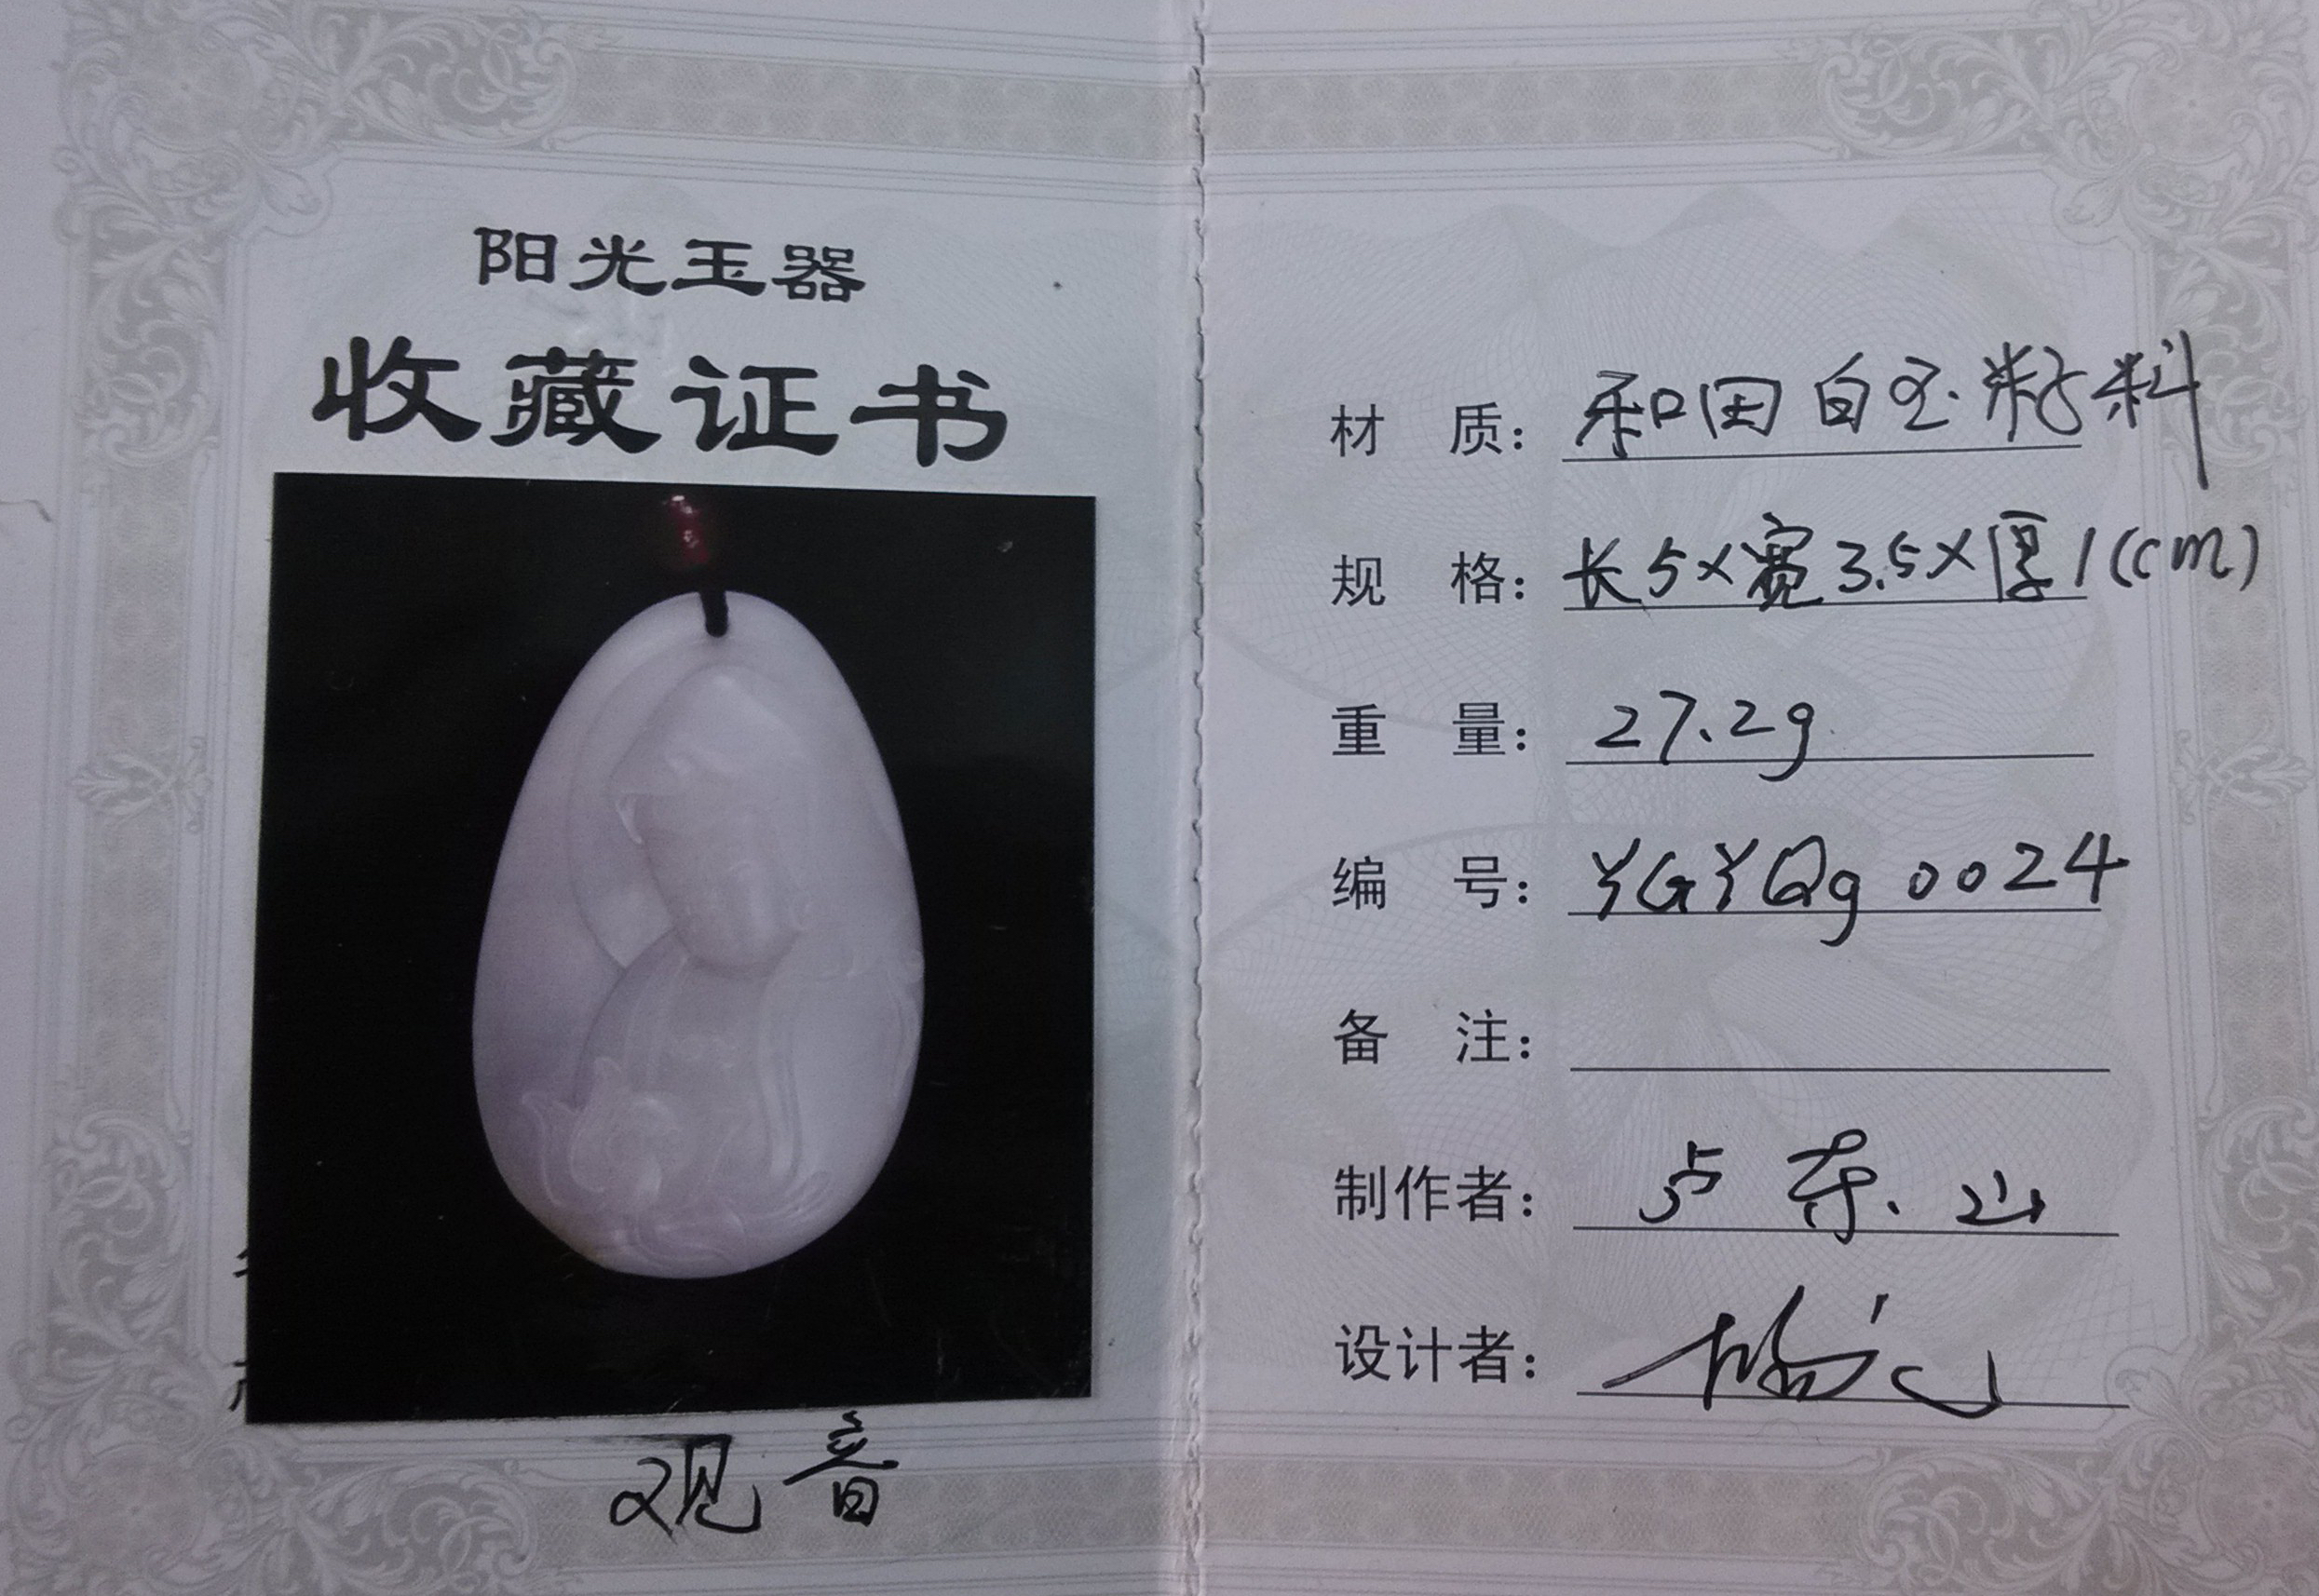 阳光玉器
收藏证书
观音
材 质：和田白玉籽料
规 格：长5×宽3.5×厚1(cm)
重 量：27.2g
编 号：YGYQg 0024
备 注：
制作者：卢东山
设计者：